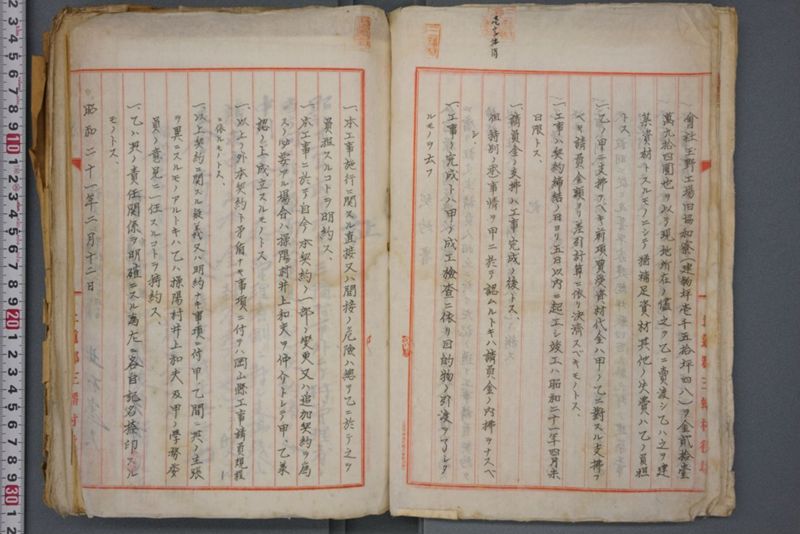 會社玉野工場旧協和寮(建物坪壱千五拾坪四八)ヲ金貳拾壹
萬九拾四圓也ヲ以テ現地所在ノ儘之ヲ乙ニ賣渡シ乙ハ之ヲ建
築資材トスルモノニシテ猶補足資材其他ノ失費ハ乙ノ負担
トス、
一、乙ノ甲ニ支拂フベキ前項賣渡資材代金ハ甲ノ乙ニ對スル支拂フ
ベキ請負金額ヨリ差引計算ニ依リ決済スベキモノトス、
一、工事ハ契約締結ノ日ヨリ五日以内ニ起工シ竣工ハ昭和二十一年四月末
日限トス、
一、請負金ノ支拂ハ工事完成ノ後トス、
但特別ノ事情ヲ甲ニ於テ認ムルトキハ請負金ノ内拂ヲナスベ
シ、
一、工事ノ完成トハ甲ノ成工檢査ニ依リ目的物ノ引渡ヲ了シタ
ルモノヲ云フ
一、本工事施行ニ関スル直接又ハ間接ノ危険ハ總テ乙ニ於テ之ヲ
負担スルコトヲ明約ス、
一、本工事ニ於テ自今本契約ノ一部ノ変更又ハ追加契約ヲ為
ス必要アル場合ハ操陽村井上和夫ヲ仲介トシテ甲、乙兼
認ノ上成立スルモノトス、
一、以上ノ外本契約ト矛盾ナキ事項ニ付テハ岡山縣工事請負規程
ニ依ルモノトス、
一、以上契約ニ関スル疑義又ハ明約ナキ事項ニ付甲、乙間ニ其ノ主張
ヲ異ニスルモノアルトキハ乙ハ操陽村井上和夫及甲ノ学務委
員ノ意見ニ一任スルコトヲ特約ス、
一、乙ハ其ノ責任関係ヲ明確ニスル為左ニ各自記名捺印スル
モノトス、
昭和二十一年二月十二日